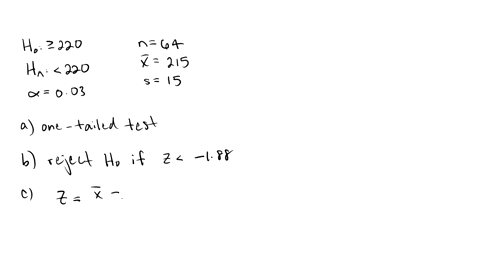 H₀: ≥ 220
Hₙ: < 220
α = 0.03
n = 64
x̄ = 215
s = 15
a) one-tailed test
b) reject H₀ if z < -1.88
c) z = x̄ -